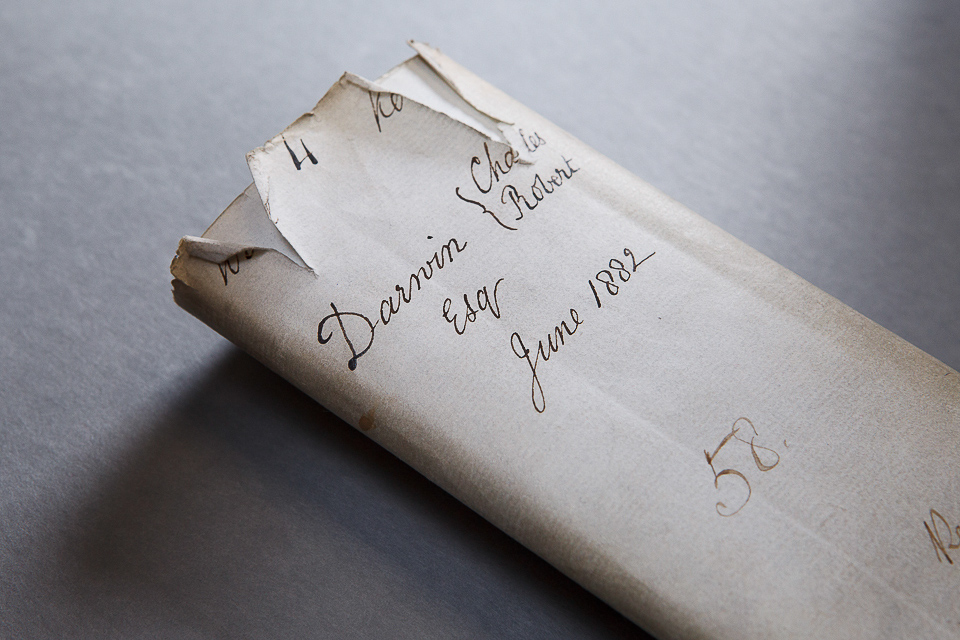 4
Darwin { Charles
Robert
Esq
June 1882
58.